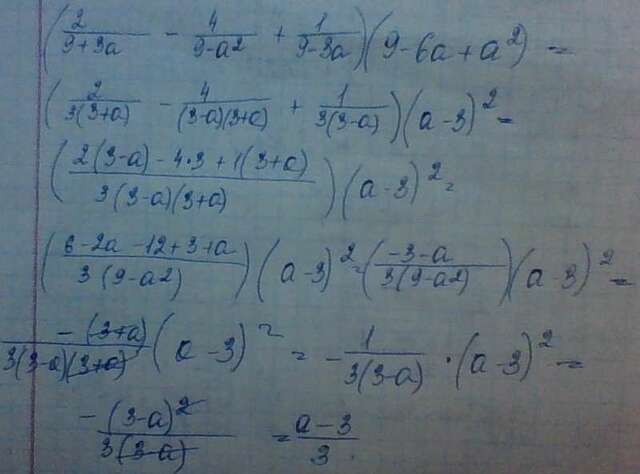 (2/(9+3a) - 4/(9-a²) + 1/(9-3a))(9-6a+a²) =
(2/(3(3+a)) - 4/((3-a)(3+a)) + 1/(3(3-a)))(a-3)² =
((2(3-a)-4·3+1(3+a))/(3(3-a)(3+a)))(a-3)² =
((6-2a-12+3+a)/(3(9-a2)))(a-3)² = ((-3-a)/(3(9-a2)))(a-3)² =
(-(3+a))/(3(3-a)(3+a))(a-3)² = -1/(3(3-a))·(a-3)² =
(-(3-a)²)/(3(3-a)) = (a-3)/3